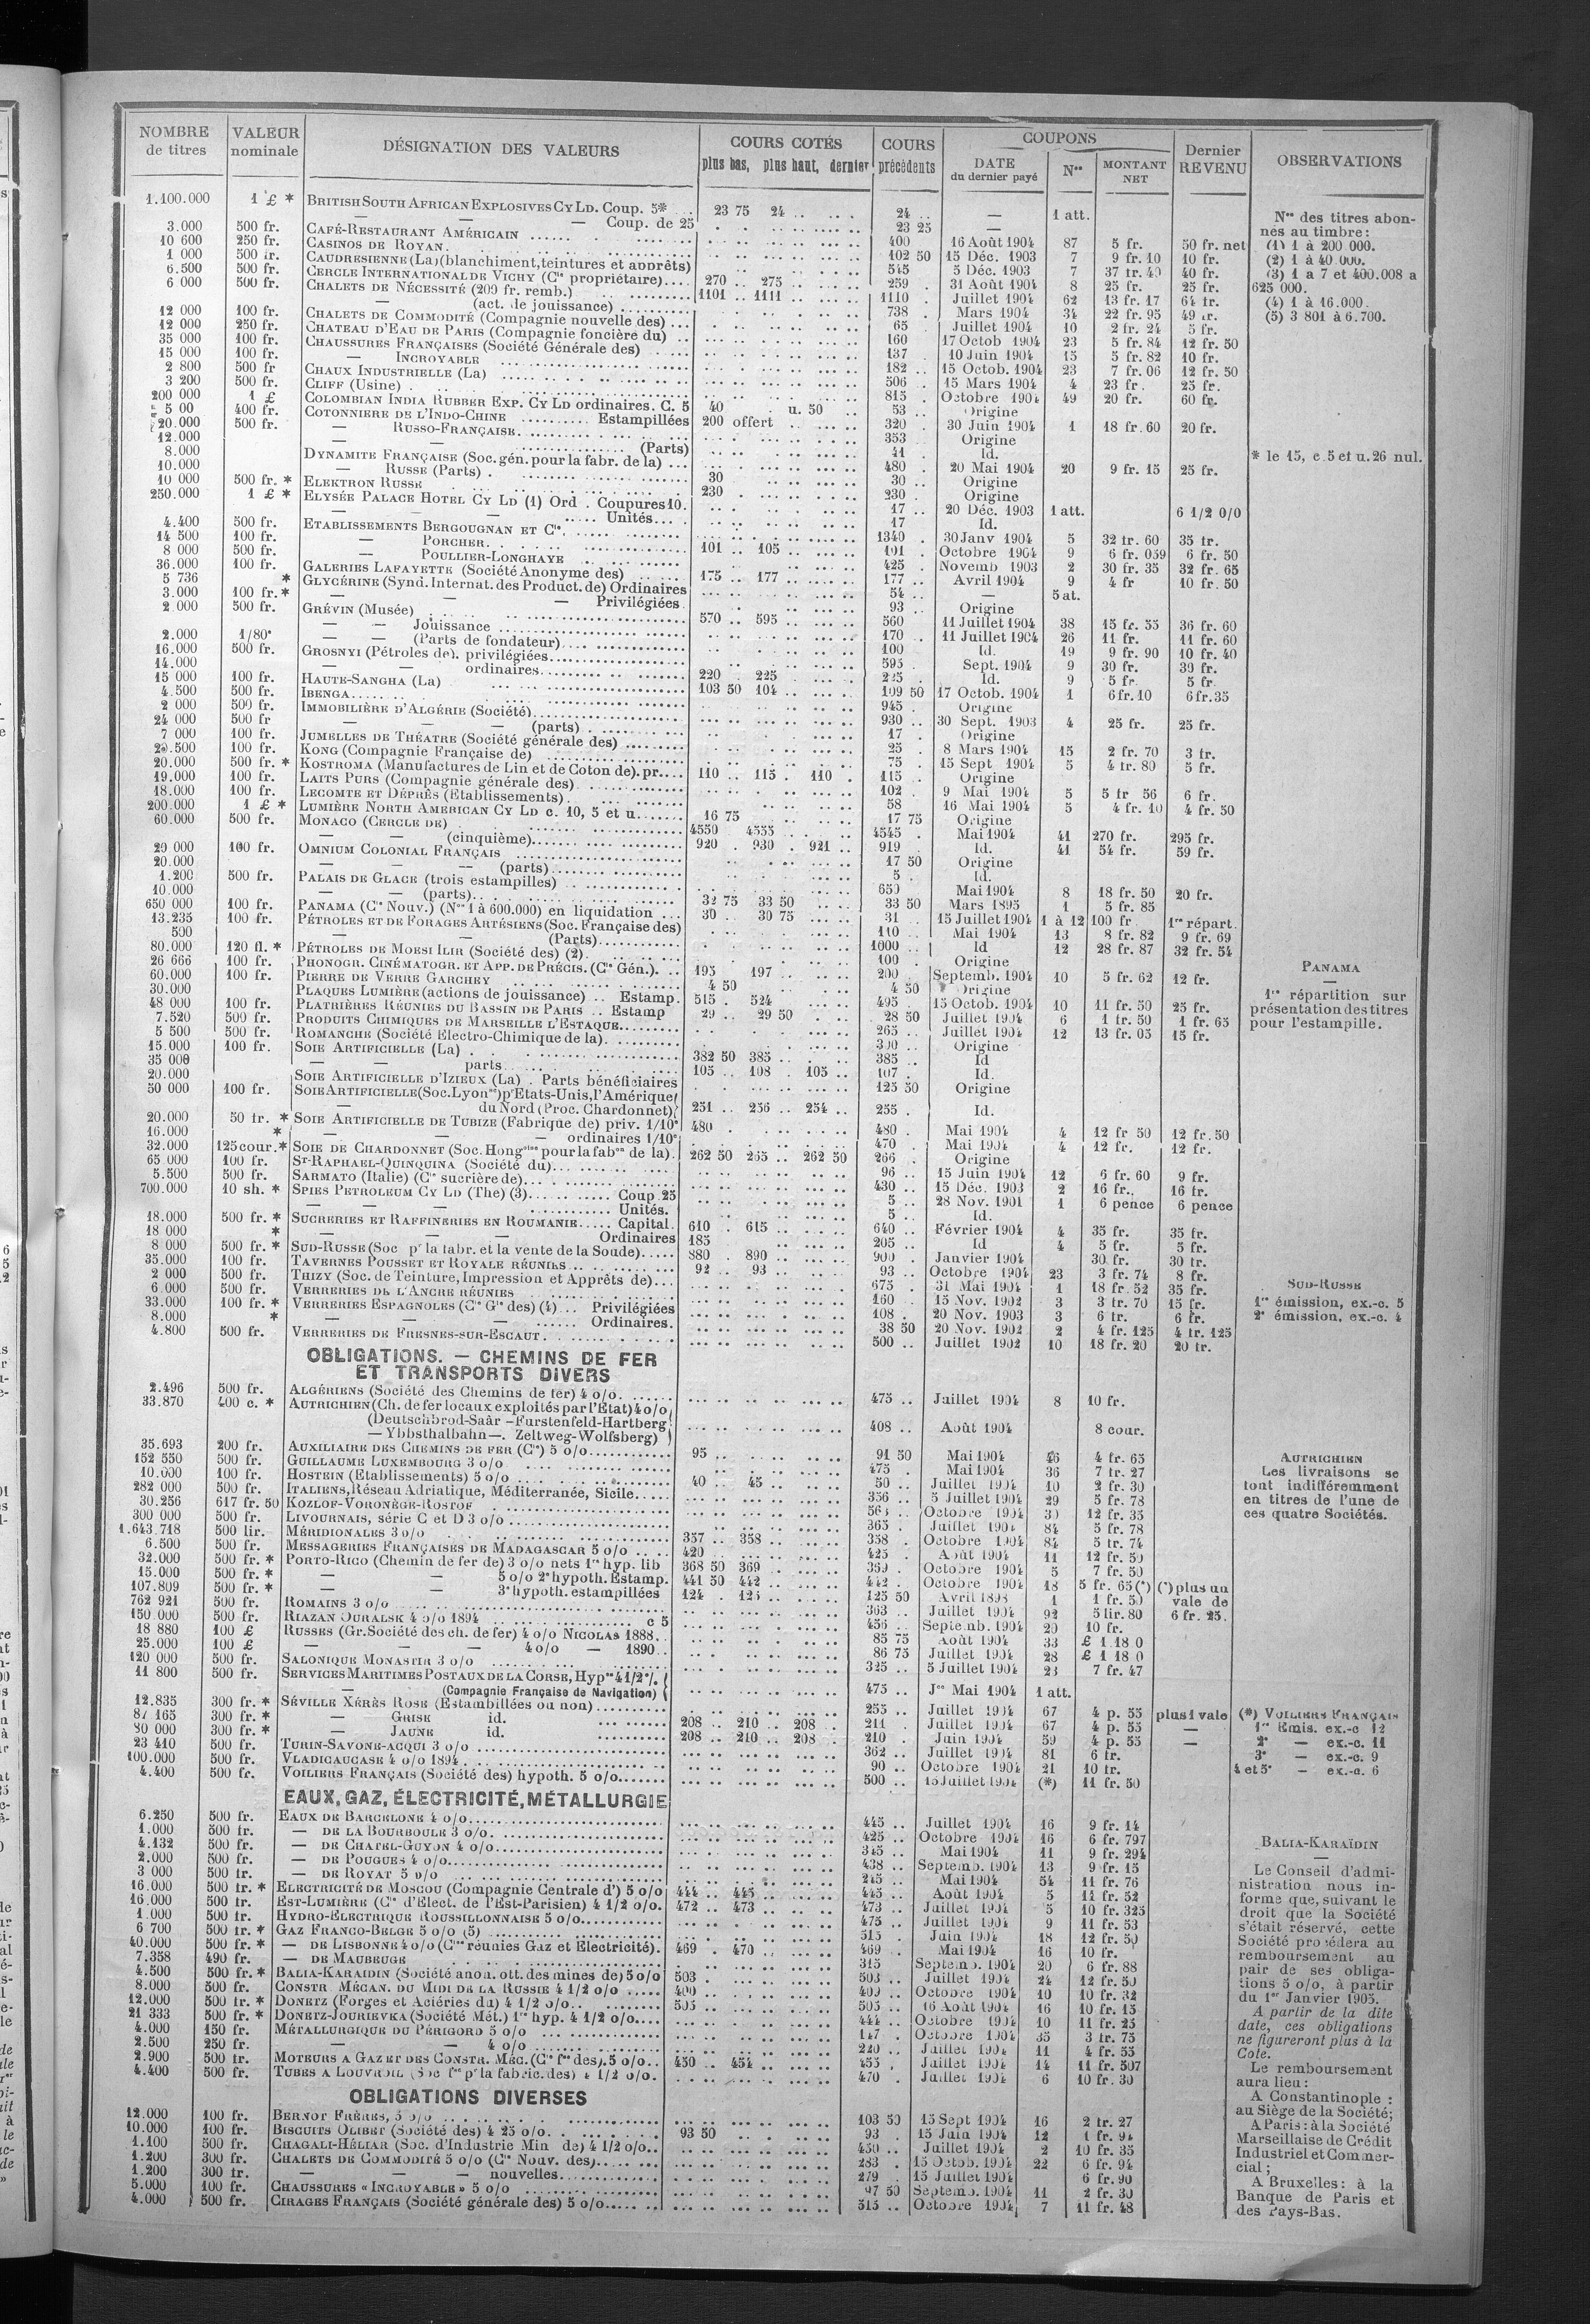 NOMBRE de titres | VALEUR nominale | DÉSIGNATION DES VALEURS | COURS COTÉS plus bas, plus haut, dernier | COURS précédents | COUPONS DATE du dernier payé | Nos | MONTANT NET | Dernier REVENU | OBSERVATIONS
1.100.000 1 £ * BRITISH SOUTH AFRICAN EXPLOSIVES CY LD. Coup. 5* 23 75 24 .. 24 .. — 1 att.
— — — Coup. de 25 23 25 —
3.000 500 fr. CAFÉ-RESTAURANT AMÉRICAIN 400 16 Août 1904 87 5 fr. 50 fr. net
10 600 250 fr. CASINOS DE ROYAN 102 50 15 Déc. 1903 7 9 fr. 10 10 fr.
1 000 500 fr. CAUDRESIENNE (La) (blanchiment, teintures et apprêts) 545 5 Déc. 1903 7 40 fr.
6.500 500 fr. CERCLE INTERNATIONAL DE VICHY (Cie propriétaire) 270 .. 275 259 . 31 Août 1904 8 25 fr. 25 fr.
6 000 500 fr. CHALETS DE NÉCESSITÉ (200 fr. remb.) 1101 .. 1111 .. 1110 . Juillet 1904 62 13 fr. 17 64 fr.
— (act. de jouissance) 738 Mars 1904 34 22 fr. 95 49 fr.
12 000 100 fr. CHALETS DE COMMODITÉ (Compagnie nouvelle des) 65 Juillet 1904 10 2 fr. 24 5 fr.
12 000 250 fr. CHATEAU D'EAU DE PARIS (Compagnie foncière du) 160 17 Octob 1904 23 5 fr. 84 12 fr. 50
35 000 100 fr. CHAUSSURES FRANÇAISES (Société Générale des) 137 10 Juin 1904 15 5 fr. 82 10 fr.
15 000 100 fr. — INCROYABLE 182 .. 15 Octob. 1904 23 7 fr. 06 12 fr. 50
2 800 500 fr CHAUX INDUSTRIELLE (La) 506 15 Mars 1904 4 23 fr. 25 fr.
3 200 500 fr. CLIFF (Usine) 815 Octobre 1904 49 20 fr. 60 fr.
200 000 1 £ COLOMBIAN INDIA RUBBER EXP. CY LD ordinaires. C. 5 40 u. 50 53 .. Origine
400 fr. COTONNIERE DE L'INDO-CHINE Estampillées 200 offert 320 30 Juin 1904 1 18 fr. 60 20 fr.
20.000 500 fr. — RUSSO-FRANÇAISE 353 Origine
12.000 — — (Parts) 41 Id.
8.000 DYNAMITE FRANÇAISE (Soc. gén. pour la fabr. de la) 480 . 20 Mai 1904 20 9 fr. 15 25 fr.
10.000 — RUSSE (Parts) 30 30 .. Origine
10 000 500 fr. * ELEKTRON RUSSE 230 230 . Origine
250.000 1 £ * ELYSÉE PALACE HOTEL CY LD (1) Ord . Coupures 10. 17 .. 20 Déc. 1903 1 att. 6 1/2 0/0
— — — Unités 17 Id.
4.400 500 fr. ETABLISSEMENTS BERGOUGNAN ET Cie. 1340 . 30 Janv 1904 5 32 fr. 60 35 fr.
14 500 100 fr. — PORCHER 101 .. 105 101 . Octobre 1904 9 6 fr. 059 6 fr. 50
8 000 500 fr. — POULLIER-LONGHAYE 425 Novemb 1903 2 30 fr. 35 32 fr. 65
36.000 100 fr. GALERIES LAFAYETTE (Société Anonyme des) 175 .. 177 177 . Avril 1904 9 4 fr 10 fr. 50
5 736 * GLYCÉRINE (Synd. Internat. des Product. de) Ordinaires 54 .. — 5 at.
3.000 100 fr. * — — — Privilégiées 93 .. Origine
2.000 500 fr. GRÉVIN (Musée) 570 .. 595 560 11 Juillet 1904 38 36 fr. 60
— — Jouissance 170 . 11 Juillet 1904 26 11 fr. 11 fr. 60
2.000 1/80e — — (Parts de fondateur) 100 Id. 19 9 fr. 90 10 fr. 40
16.000 500 fr. GROSNYI (Pétroles de). privilégiées 595 Sept. 1904 9 30 fr.
14.000 — — ordinaires 220 . 225 Id. 9 5 fr. 5 fr.
15 000 100 fr. HAUTE-SANGHA (La) 103 50 104 109 50 17 Octob. 1904 1 6 fr. 10 6 fr. 35
4.500 500 fr. IBENGA 945 . Origine
2 000 500 fr. IMMOBILIÈRE D'ALGÉRIE (Société) 930 .. 30 Sept. 1903 4 25 fr. 25 fr.
24 000 500 fr — — — (parts) 17 . Origine
7 000 100 fr. JUMELLES DE THÉATRE (Société générale des) 25 . 8 Mars 1904 15 2 fr. 70 3 fr.
20.500 100 fr. KONG (Compagnie Française de) 75 15 Sept 1904 5 4 fr. 80 5 fr.
20.000 500 fr. * KOSTROMA (Manufactures de Lin et de Coton de). pr. 110 .. 115 . 110 115 Origine
19.000 100 fr. LAITS PURS (Compagnie générale des) 102 9 Mai 1904 5 5 fr 56 6 fr.
18.000 100 fr. LECOMTE ET DÉPRÈS (Etablissements) 58 16 Mai 1904 5 4 fr. 10 4 fr. 50
200.000 1 £ * LUMIÈRE NORTH AMERICAN CY LD c. 10, 5 et u. 16 75 17 75 Origine
60.000 500 fr. MONACO (CERCLE DE) 4550 4555 4545 . Mai 1904 41 270 fr. 295 fr.
— — (cinquième) 920 . 930 . 921 919 Id. 41 54 fr. 59 fr.
20 000 100 fr. OMNIUM COLONIAL FRANÇAIS 17 50 Origine
20.000 — — — (parts) 5 . Id.
1.200 500 fr. PALAIS DE GLACE (trois estampilles) 650 Mai 1904 8 18 fr. 50 20 fr.
10.000 — — (parts) 32 75 33 50 33 50 Mars 1895 1 5 fr. 85
650 000 100 fr. PANAMA (Cie Nouv.) (Nos 1 à 600.000) en liquidation 30 30 75 31 . 15 Juillet 1904 1 à 12 100 fr 1re répart.
13.235 100 fr. PÉTROLES ET DE FORAGES ARTÉSIENS (Soc. Française des) 110 Mai 1904 13 8 fr. 82 9 fr. 69
500 — — (Parts) 1000 .. Id 12 28 fr. 87 32 fr. 54
80.000 120 fl. * PÉTROLES DE MORSI ILIR (Société des) (2) 100 . Origine
26 666 100 fr. PHONOGR. CINÉMATOGR. ET APP. DE PRÉCIS. (Cie Gén.). 195 197 200 Septemb. 1904 10 5 fr. 62 12 fr.
60.000 100 fr. PIERRE DE VERRE GARCHEY 4 50 4 50 Origine
30.000 PLAQUES LUMIÈRE (actions de jouissance) .. Estamp. 515 . 524 495 . 15 Octob. 1904 10 11 fr. 50 25 fr.
48 000 100 fr. PLATRIÈRES RÉUNIES DU BASSIN DE PARIS .. Estamp 29 .. 29 50 28 50 Juillet 1904 6 1 fr. 50 1 fr. 65
7.520 500 fr. PRODUITS CHIMIQUES DE MARSEILLE L'ESTAQUE 265 .. Juillet 1904 12 13 fr. 05 15 fr.
5 500 500 fr. ROMANCHE (Société Electro-Chimique de la). 300 . Origine
15.000 100 fr. SOIE ARTIFICIELLE (La) 382 50 385 385 .. Id
35 000 — — parts 105 .. 108 . 105 107 . Id.
20.000 SOIE ARTIFICIELLE D'IZIEUX (La) . Parts bénéficiaires 125 50 Origine
50 000 100 fr. SOIE ARTIFICIELLE (Soc. Lyonse) pr Etats-Unis, l'Amérique
— du Nord (Proc. Chardonnet) 251 .. 256 .. 254 255 . Id.
20.000 50 fr. * SOIE ARTIFICIELLE DE TUBIZE (Fabrique de) priv. 1/10e 480 480 . Mai 1904 4 12 fr 50 12 fr. 50
16.000 * — — — ordinaires 1/10e 470 . Mai 1904 4 12 fr. 12 fr.
32.000 125 cour. * SOIE DE CHARDONNET (Soc. Hongroise pour la fabon de la). 262 50 265 .. 262 50 266 Origine
65.000 100 fr. ST-RAPHAEL-QUINQUINA (Société du) 96 .. 15 Juin 1904 12 6 fr. 60 9 fr.
5.500 500 fr. SARMATO (Italie) (Cie sucrière de) 430 .. 15 Déc. 1903 2 16 fr. 16 fr.
700.000 10 sh. * SPIES PETROLEUM CY LD (The) (3) Coup 25 5 . 28 Nov. 1901 1 6 pence 6 pence
— — — Unités. 5 .. Id.
18.000 500 fr. * SUCRERIES ET RAFFINERIES EN ROUMANIE Capital. 610 . 615 640 Février 1904 4 35 fr. 35 fr.
18 000 * — — — Ordinaires 185 205 .. Id 4 5 fr. 5 fr.
8 000 500 fr. * SUD-RUSSE (Soc pr la fabr. et la vente de la Soude) 880 890 900 Janvier 1904 30 fr. 30 fr.
35.000 100 fr. TAVERNES POUSSET ET ROYALE RÉUNIES 92 . 93 93 .. Octobre 1904 23 3 fr. 74 8 fr.
2 000 500 fr. THIZY (Soc. de Teinture, Impression et Apprêts de) 675 . 31 Mai 1904 1 18 fr. 52 35 fr.
6 000 500 fr. VERRERIES DE L'ANCRE RÉUNIES 160 . 15 Nov. 1902 3 3 fr. 70 15 fr.
33.000 100 fr. * VERRERIES ESPAGNOLES (Cie Gle des) (4) .. Privilégiées 108 . 20 Nov. 1903 3 6 fr. 6 fr.
8.000 * — — Ordinaires. 38 50 20 Nov. 1902 2 4 fr. 125 4 fr. 125
4.800 500 fr. VERRERIES DE FRESNES-SUR-ESCAUT 500 .. Juillet 1902 10 18 fr. 20 20 fr.
OBLIGATIONS. — CHEMINS DE FER
ET TRANSPORTS DIVERS
2.496 500 fr. ALGÉRIENS (Société des Chemins de fer) 4 o/o. 475 .. Juillet 1904 8 10 fr.
33.870 400 c. * AUTRICHIEN (Ch. de fer locaux exploités par l'Etat) 4 o/o
(Deutschbrod-Saàr –Furstenfeld-Hartberg
— Ybbsthalbahn —. Zeltweg-Wolfsberg) 408 .. Août 1904 8 cour.
35.693 200 fr. AUXILIAIRE DES CHEMINS DE FER (Cie) 5 o/o 95 .. 91 50 Mai 1904 46 4 fr. 65
152 550 500 fr. GUILLAUME LUXEMBOURG 3 o/o 475 . Mai 1904 36 7 fr. 27
10.000 100 fr. HOSTEIN (Etablissements) 5 o/o 40 .. 45 50 .. Juillet 1904 10 2 fr. 30
282 000 500 fr. ITALIENS, Réseau Adriatique, Méditerranée, Sicile 356 .. 5 Juillet 1904 29 5 fr. 78
30.256 617 fr. 50 KOZLOF-VORONÈGE-ROSTOF Octobre 1904 30 12 fr. 35
300 000 500 fr. LIVOURNAIS, série C et D 3 o/o 365 . Juillet 1904 84 5 fr. 78
1.643.718 500 lir. MÉRIDIONALES 3 o/o 357 .. 358 358 . Octobre 1904 84 5 fr. 74
6.500 500 fr. MESSAGERIES FRANÇAISES DE MADAGASCAR 5 o/o 420 425 . Août 1904 11 12 fr. 50
32.000 500 fr. * PORTO-RICO (Chemin de fer de) 3 o/o nets 1re hyp. lib 368 50 369 359 . Octobre 1904 5 7 fr. 50
15.000 500 fr. * — — 5 o/o 2e hypoth. Estamp. 441 50 442 442 . Octobre 1904 18 5 fr. 65 (*) (*) plus un
107.809 500 fr. * — — 3e hypoth. estampillées 124 . 125 125 50 Avril 1898 1 1 fr. 50 vale de
762 921 500 fr. ROMAINS 3 o/o 363 .. Juillet 1904 92 5 lir. 80 6 fr. 25.
150.000 500 fr. RIAZAN OURALSK 4 o/o 1894 c 5 456 .. Septemb. 1904 20 10 fr.
18 880 100 £ RUSSES (Gr. Société des ch. de fer) 4 o/o NICOLAS 1888. 85 75 Août 1904 33 £ 1 18 0
25.000 100 £ — — 4 o/o — 1890 86 75 Juillet 1904 28 £ 1 18 0
120 000 500 fr. SALONIQUE MONASTIR 3 o/o 325 .. 5 Juillet 1904 23 7 fr. 47
11 800 500 fr. SERVICES MARITIMES POSTAUX DE LA CORSE, Hypres 4 1/2 %.
— (Compagnie Française de Navigation) 475 .. Jce Mai 1904 1 att.
12.835 300 fr. * SÉVILLE XÉRÈS ROSE (Estambillées ou non) 255 .. Juillet 1904 67 4 p. 55 plus 1 vale
87 165 300 fr. * — GRISE id. 208 .. 210 .. 208 211 . Juillet 1904 67 4 p. 55 —
80 000 300 fr. * — JAUNE id. 208 .. 210 .. 208 210 . Juin 1904 59 4 p. 55 —
23 410 500 fr. TURIN-SAVONE-ACQUI 3 o/o 362 .. Juillet 1904 81 6 fr.
100.000 500 fr. VLADICAUCASE 4 o/o 1894 90 .. Octobre 1904 21 10 fr.
4.400 500 fr. VOILIERS FRANÇAIS (Société des) hypoth. 5 o/o 500 .. 15 Juillet 1904 (*) 11 fr. 50
EAUX, GAZ, ÉLECTRICITÉ, MÉTALLURGIE
6.250 500 fr. EAUX DE BARCELONE 4 o/o 445 .. Juillet 1904 16 9 fr. 14
1.000 500 fr. — DE LA BOURBOULE 3 o/o. 425 .. Octobre 1904 16 6 fr. 797
4.132 500 fr. — DE CHATEL-GUYON 4 o/o Mai 1904 11 9 fr. 294
2.000 500 fr. — DE POUGUES 4 o/o 438 .. Septemb. 1904 13 9 fr. 15
3 000 500 fr. — DE ROYAT 5 o/o 245 .. Mai 1904 54 11 fr. 76
16.000 500 fr. * ELECTRICITÉ DE MOSCOU (Compagnie Centrale d') 5 o/o 444 .. 445 445 .. Août 1904 5 11 fr. 52
16.000 500 fr. EST-LUMIÈRE (Cie d'Elect. de l'Est-Parisien) 4 1/2 o/o. 472 .. 473 473 .. Juillet 1904 5 10 fr. 325
1.000 500 fr. HYDRO-ÉLECTRIQUE ROUSSILLONNAISE 5 o/o 475 .. Juillet 1904 9 11 fr. 53
6 700 500 fr. * GAZ FRANCO-BELGE 5 o/o (5) 515 . Juin 1904 18 12 fr. 50
40.000 500 fr. * — DE LISBONNE 4 o/o (Cies réunies Gaz et Electricité). 469 . 470 469 . Mai 1904 16 10 fr.
7.358 490 fr. — DE MAUBEUGE 315 Septemb. 1904 20 6 fr. 88
4.500 500 fr. * BALIA-KARAÏDIN (Société anon. ott. des mines de) 5 o/o 503 503 .. Juillet 1904 24 12 fr. 50
8.000 500 fr. CONSTR. MÉCAN. DU MIDI DE LA RUSSIE 4 1/2 o/o 400 400 .. Octobre 1904 10 10 fr. 32
12.000 500 fr. * DONETZ (Forges et Aciéries du) 4 1/2 o/o 505 505 .. 16 Août 1904 16 10 fr. 15
21 333 500 fr. * DONETZ-JOURIEVKA (Société Mét.) 1re hyp. 4 1/2 o/o 444 .. Octobre 1904 10 11 fr. 25
4.000 150 fr. MÉTALLURGIQUE DU PÉRIGORD 5 o/o 147 Octobre 1904 35 3 fr. 75
2.500 250 fr. — — 4 o/o 220 .. Juillet 1904 11 4 fr. 55
2.900 500 fr. MOTEURS A GAZ ET DES CONSTR. MÉC. (Cie fse des). 5 o/o 450 .. 454 455 . Juillet 1904 14 11 fr. 507
4.400 500 fr. TUBES A LOUVROIL (Soc fse pr la fabric. des) 4 1/2 o/o. 470 . Juillet 1904 6 10 fr. 30
OBLIGATIONS DIVERSES
12.000 100 fr. BERNOT FRÈRES, 5 o/o 103 50 15 Sept 1904 16 2 fr. 27
10.000 100 fr. BISCUITS OLIBET (Société des) 4 25 o/o 93 50 93 . 15 Juin 1904 12 1 fr. 94
1.100 500 fr. CHAGALI-HÉLIAR (Soc. d'Industrie Min de) 4 1/2 o/o 450 .. Juillet 1904 2 10 fr. 35
1.200 300 fr. CHALETS DE COMMODITÉ 5 o/o (Cie Nouv. des) 283 . 15 Octob. 1904 22 6 fr. 94
1.200 300 fr. — — — nouvelles 279 . 15 Juillet 1904 6 fr. 90
5.000 100 fr. CHAUSSURES « INCROYABLE » 5 o/o 97 50 Septemb. 1904 11 2 fr. 30
4.000 500 fr. CIRAGES FRANÇAIS (Société générale des) 5 o/o 515 .. Octobre 1904 7 11 fr. 48
Nos des titres abon-
nés au timbre :
(1) 1 à 200 000.
(2) 1 à 40.000.
(3) 1 a 7 et 400.008 a
625 000.
(4) 1 à 16.000.
(5) 3 801 à 6.700.
* le 15, c. 5 et u. 26 nul.
PANAMA
—
1re répartition sur
présentation des titres
pour l'estampille.
SUD-RUSSE
1re émission, ex.-c. 5
2e émission, ex.-c. 4
AUTRICHIEN
Les livraisons se
font indifféremment
en titres de l'une de
ces quatre Sociétés.
(*) VOILIERS FRANÇAIS
1re Emis. ex.-c 12
2e — ex.-c. 11
3e — ex.-c. 9
4 et 5e — ex.-c. 6
BALIA-KARAÏDIN
—
Le Conseil d'admi-
nistration nous in-
forme que, suivant le
droit que la Société
s'était réservé, cette
Société procédera au
remboursement au
pair de ses obliga-
tions 5 o/o, à partir
du 1er Janvier 1905.
A partir de la dite
date, ces obligations
ne figureront plus à la
Cote.
Le remboursement
aura lieu :
A Constantinople :
au Siège de la Société;
A Paris : à la Société
Marseillaise de Crédit
Industriel et Commer-
cial ;
A Bruxelles : à la
Banque de Paris et
des Pays-Bas.